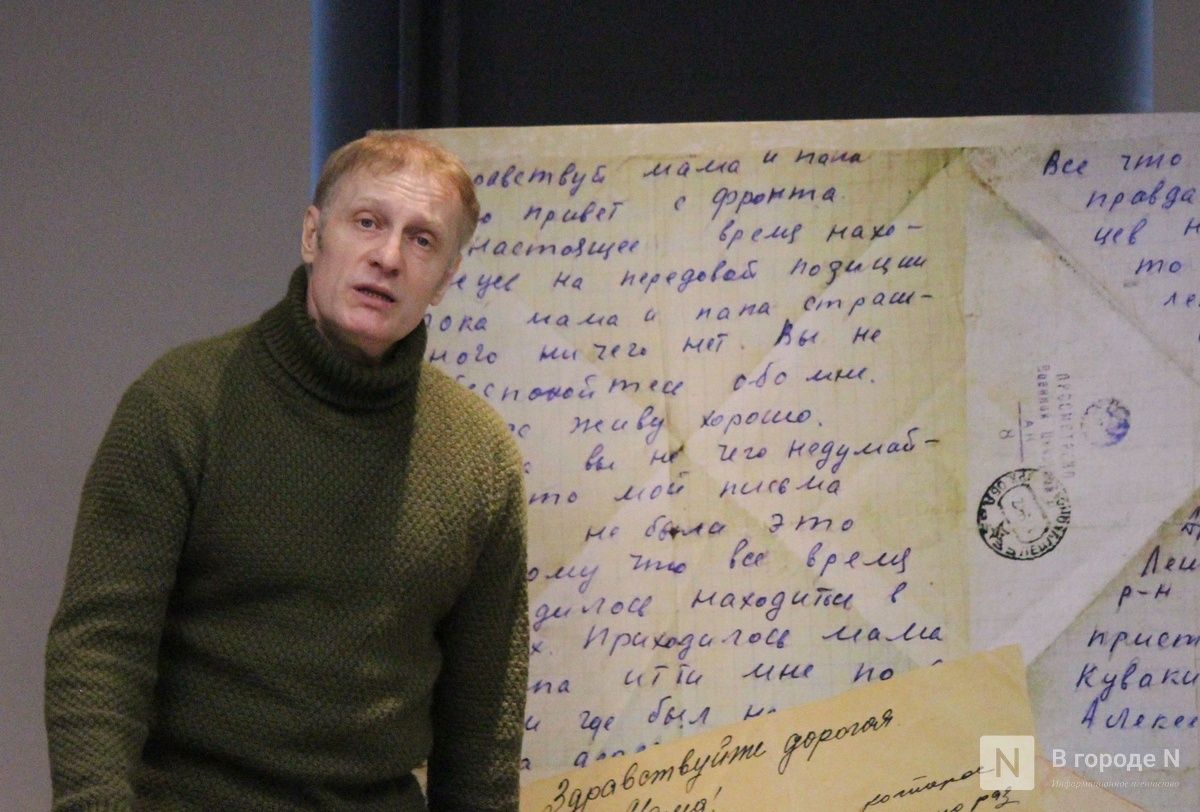 равствуй мама и папа
привет с фронта.
настоящее время нахо-
на передовой позиции
пока мама и папа страш-
ного ни чего нет. Вы не
беспокойтесь обо мне.
живу хорошо.
вы не чего недумай-
то мои письма
не была это
ому что все время
дилось находиться в
х. Приходилось мама
па итти мне по
и где был н
Все что
правда
цев н
то
ле
Просмотрено
Военной Цензурой
8
Лен
р-н
прист
Куваки
Алексе
Здравствуйте дорогая
Мама!
которое
раз
N
В городе N
Информационное агентство